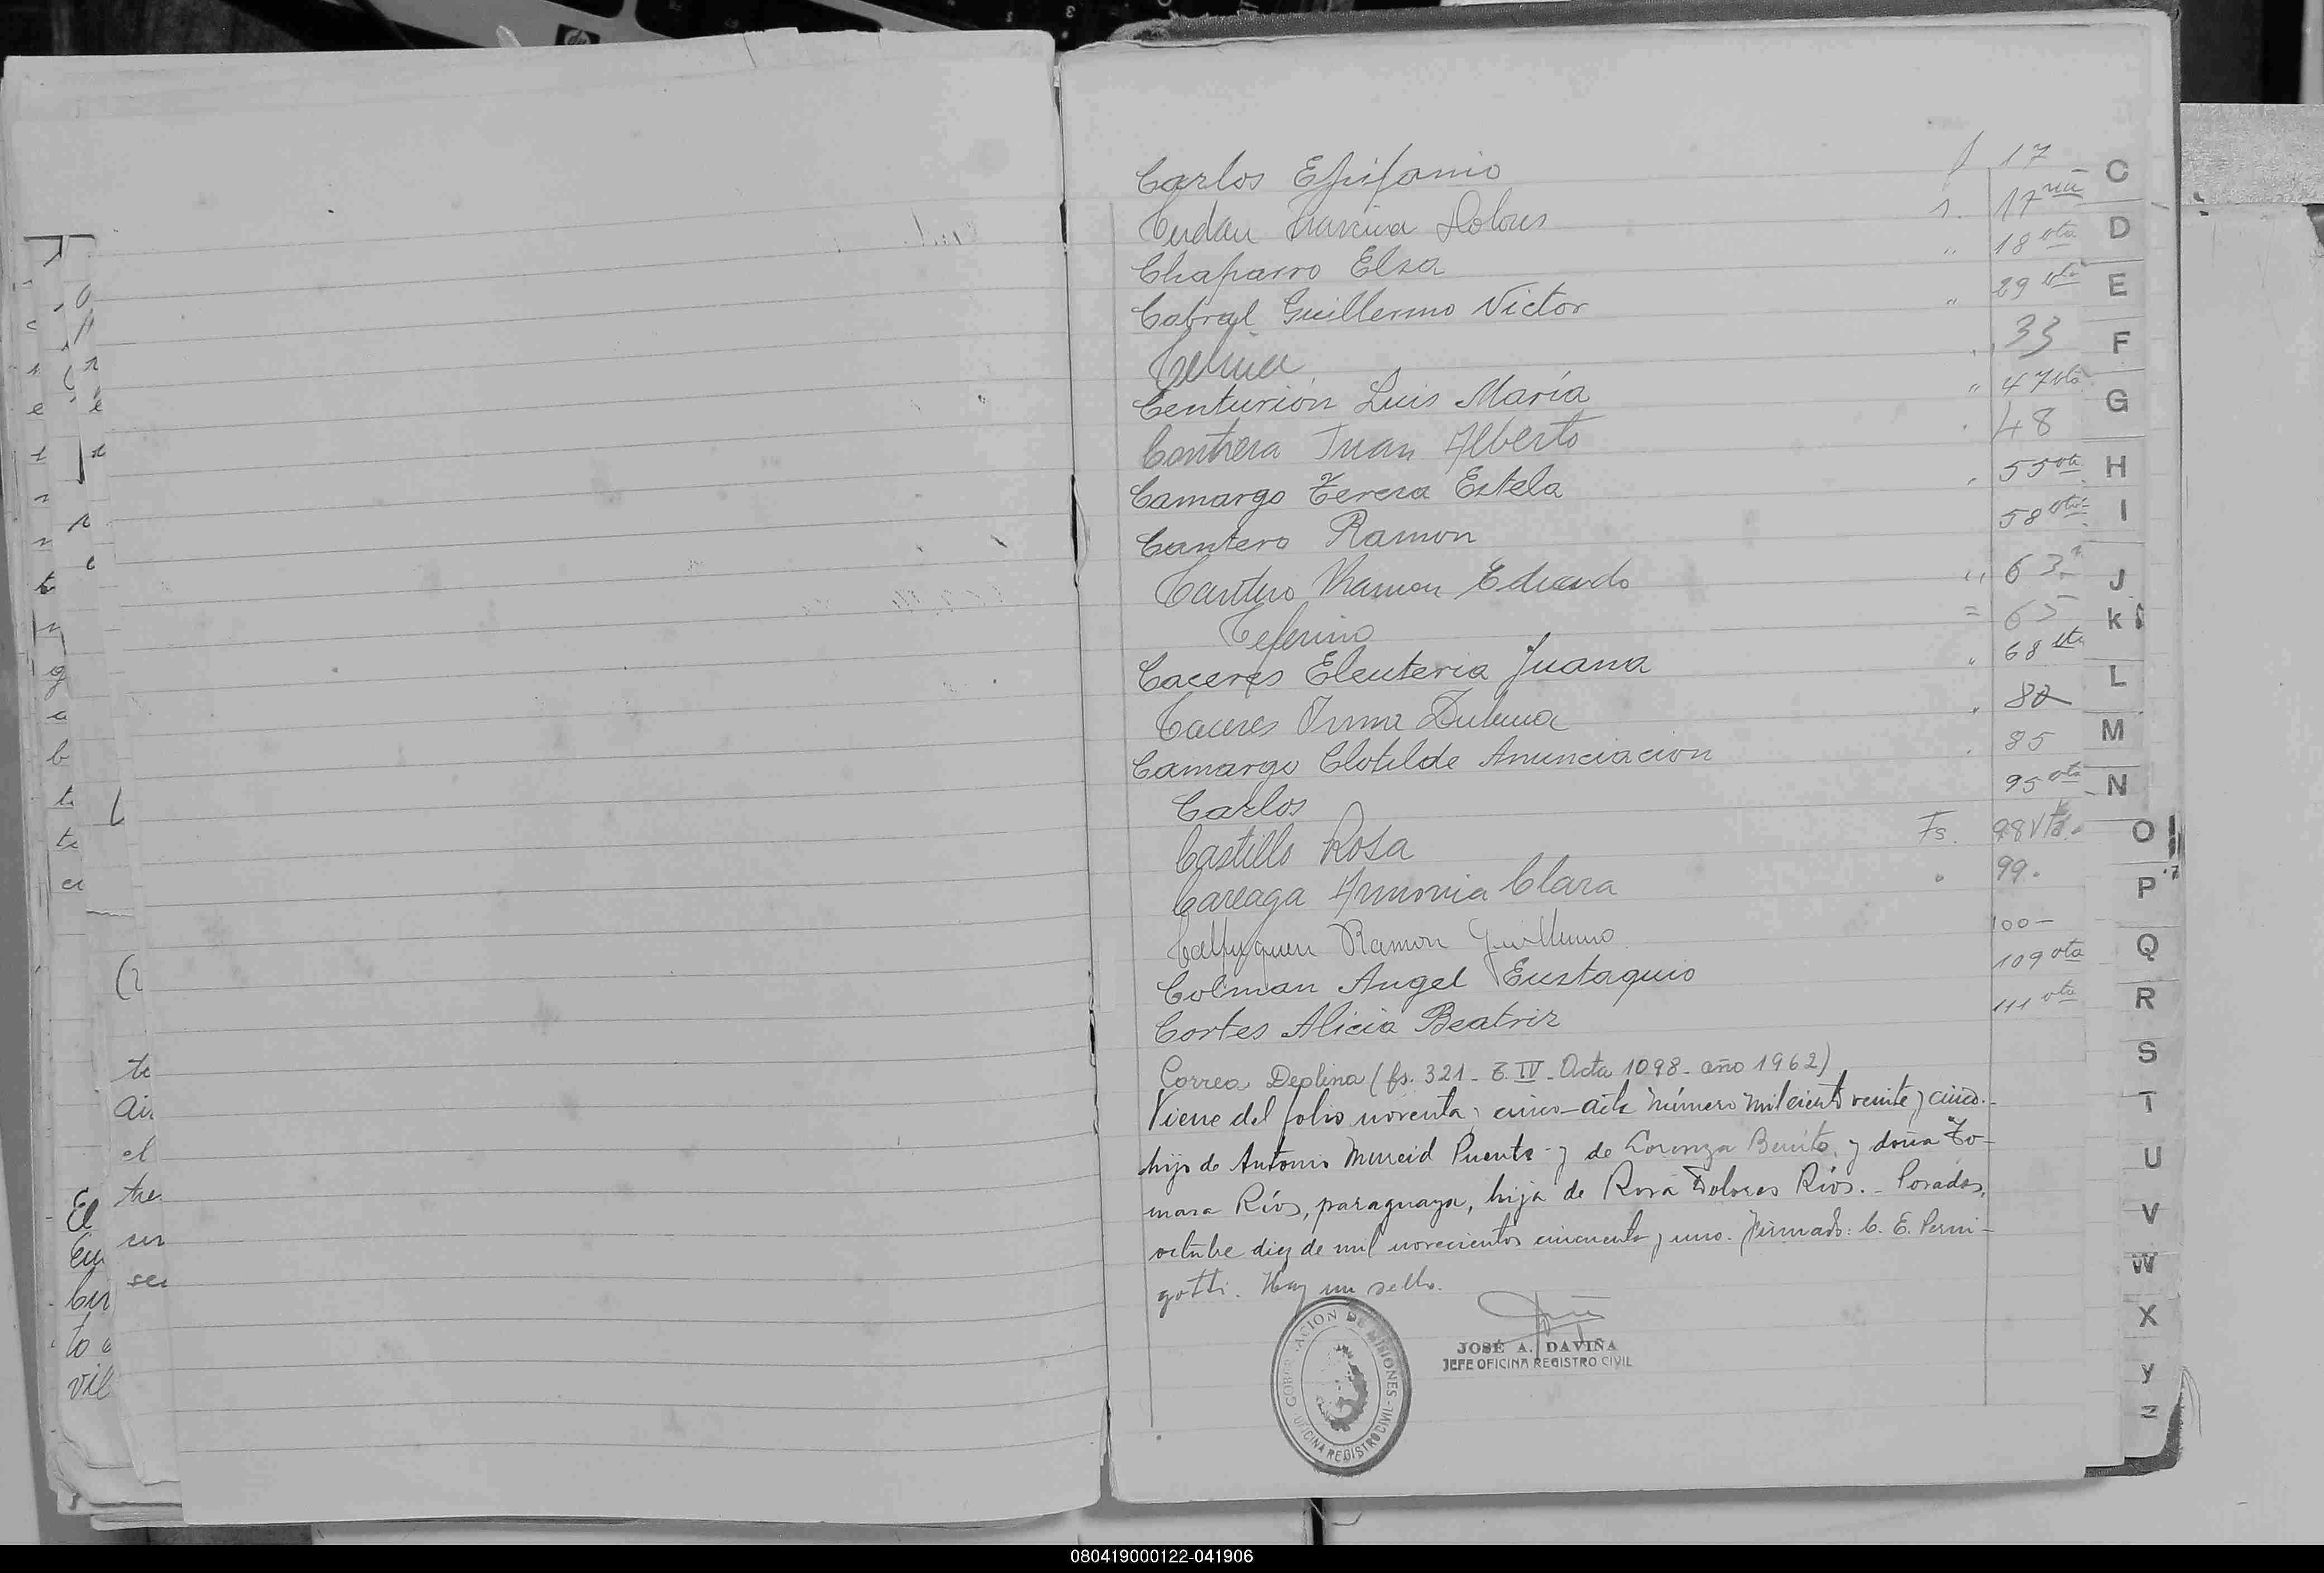 Carlos Epifanio f 17
Dolores 1. 17 vta
Chaparro Elsa " 18 vta
Cabral Guillermo Victor " 29 vta
33
Centurión Luis María " 47 vta
Contrera Juan Alberto 48
Camargo Teresa Estela 55 vta
Cantero Ramon 58 vta
Cantero Ramon Eduardo " 63
Ceferino = 65
Caceres Eleuteria Juana " 68 vta
Caceres Irma Zulema 80
Camargo Clotilde Anunciacion 85
Carlos 95 vta
Castillo Rosa Fs. 98 Vta.
Careaga Clara 99.
Ramon Guillermo 100-
Colman Angel Eustaquio 109 vta
Cortes Alicia Beatriz 111 vta
Correa Deolina (fs. 321 - T. IV - Acta 1098 - año 1962)
Viene del folio noventa y cinco - acta número mil ciento veinte y cinco.-
hijo de Antonio Puente y de Lorenza Benito, y doña To-
masa Ríos, paraguaya, hija de Rosa Dolores Ríos. - Posadas,
octubre diez de mil novecientos cincuenta y uno. Firmado: C. E. Perni-
gotti. Hay un sello.
GOBERNACION DE MISIONES
OFICINA REGISTRO CIVIL
JOSÉ A. DAVIÑA
JEFE OFICINA REGISTRO CIVIL
C
D
E
F
G
H
I
J
k
L
M
N
O
P
Q
R
S
T
U
V
W
X
y
Z
te
el
tre
El
to
vil
hp
080419000122-041906